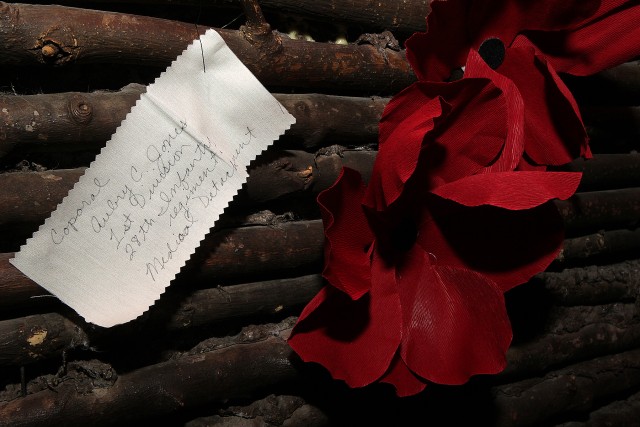 Coporal
Aubry C. Jones
1st Division
28th Infantry
regiment.
Medical Detachent